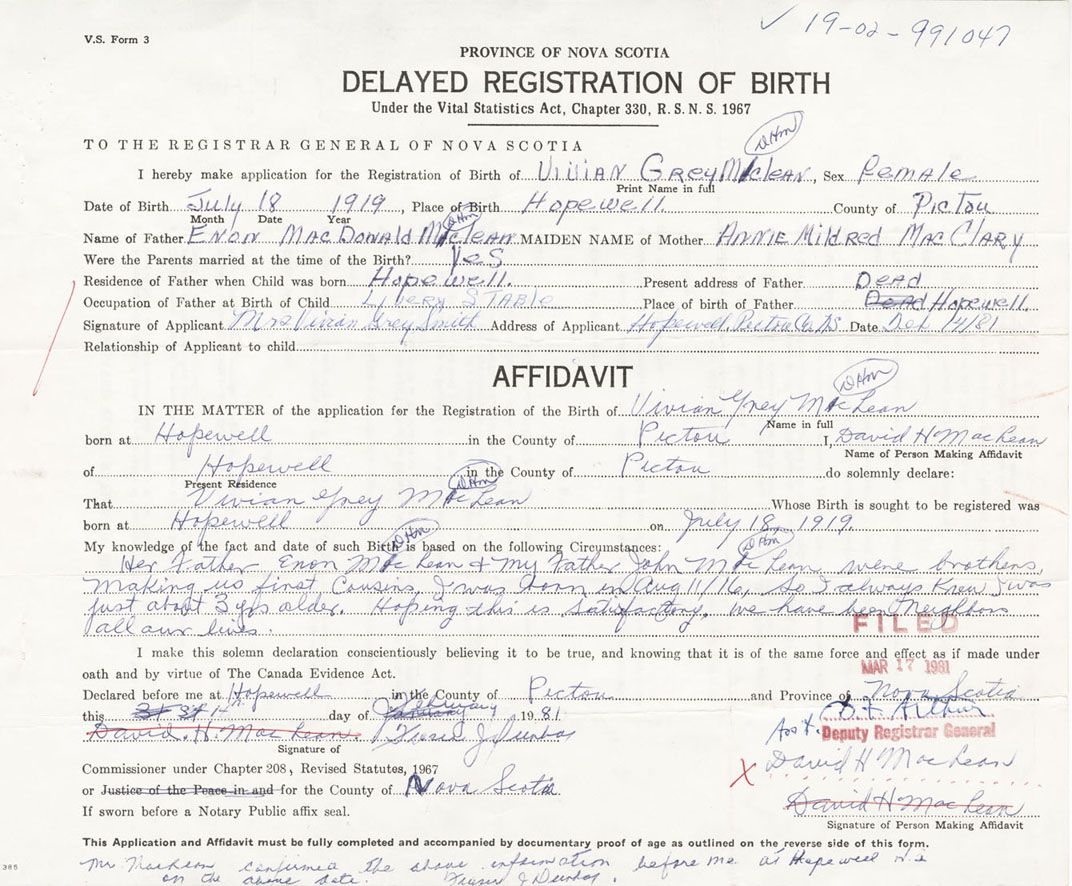 ✓ 19-02-991047
V.S. Form 3
PROVINCE OF NOVA SCOTIA
DELAYED REGISTRATION OF BIRTH
Under the Vital Statistics Act, Chapter 330, R.S.N.S. 1967
TO THE REGISTRAR GENERAL OF NOVA SCOTIA
DHM
I hereby make application for the Registration of Birth of Vivian Grey Maclean, Sex Female
Print Name in full
Date of Birth July 18 1919, Place of Birth Hopewell. County of Pictou
Month Date Year
DHM
Name of Father Enon MacDonald Maclean MAIDEN NAME of Mother Annie Mildred MacClary
Were the Parents married at the time of the Birth? Yes
Residence of Father when Child was born Hopewell. Present address of Father Dead
Occupation of Father at Birth of Child Livery Stable Place of birth of Father Dead Hopewell.
Signature of Applicant Mrs Vivian Grey Smith Address of Applicant Hopewell Pictou Co NS Date Feb 14/81
Relationship of Applicant to child
AFFIDAVIT
DHM
IN THE MATTER of the application for the Registration of the Birth of Vivian Grey MacLean
Name in full
born at Hopewell in the County of Pictou I, David H MacLean
Name of Person Making Affidavit
of Hopewell in the County of Pictou do solemnly declare:
Present Residence
DHM
That Vivian Grey MacLean Whose Birth is sought to be registered was
born at Hopewell on July 18, 1919.
DHM DHM
My knowledge of the fact and date of such Birth is based on the following Circumstances:
Her Father Enon MacLean & my Father John MacLean were brothers
making us first cousins, I was born in Aug 11/16, So I always knew I was
just about 3 yrs older. Hoping this is satisfactory. We have been Neighbors
all our lives.
FILED
I make this solemn declaration conscientiously believing it to be true, and knowing that it is of the same force and effect as if made under
MAR 17 1981
oath and by virtue of The Canada Evidence Act.
Declared before me at Hopewell in the County of Pictou and Province of Nova Scotia
this 1st day of February 1981
Ass't. Deputy Registrar General
David H. MacLean Fraser J Dunbar
Signature of
X David H MacLean
Commissioner under Chapter 208, Revised Statutes, 1967
or Justice of the Peace in and for the County of Nova Scotia
David H MacLean
If sworn before a Notary Public affix seal.
Signature of Person Making Affidavit
This Application and Affidavit must be fully completed and accompanied by documentary proof of age as outlined on the reverse side of this form.
385
Mr MacLean confirmed the above information before me at Hopewell N.S
on the above date. Fraser J Dunbar.